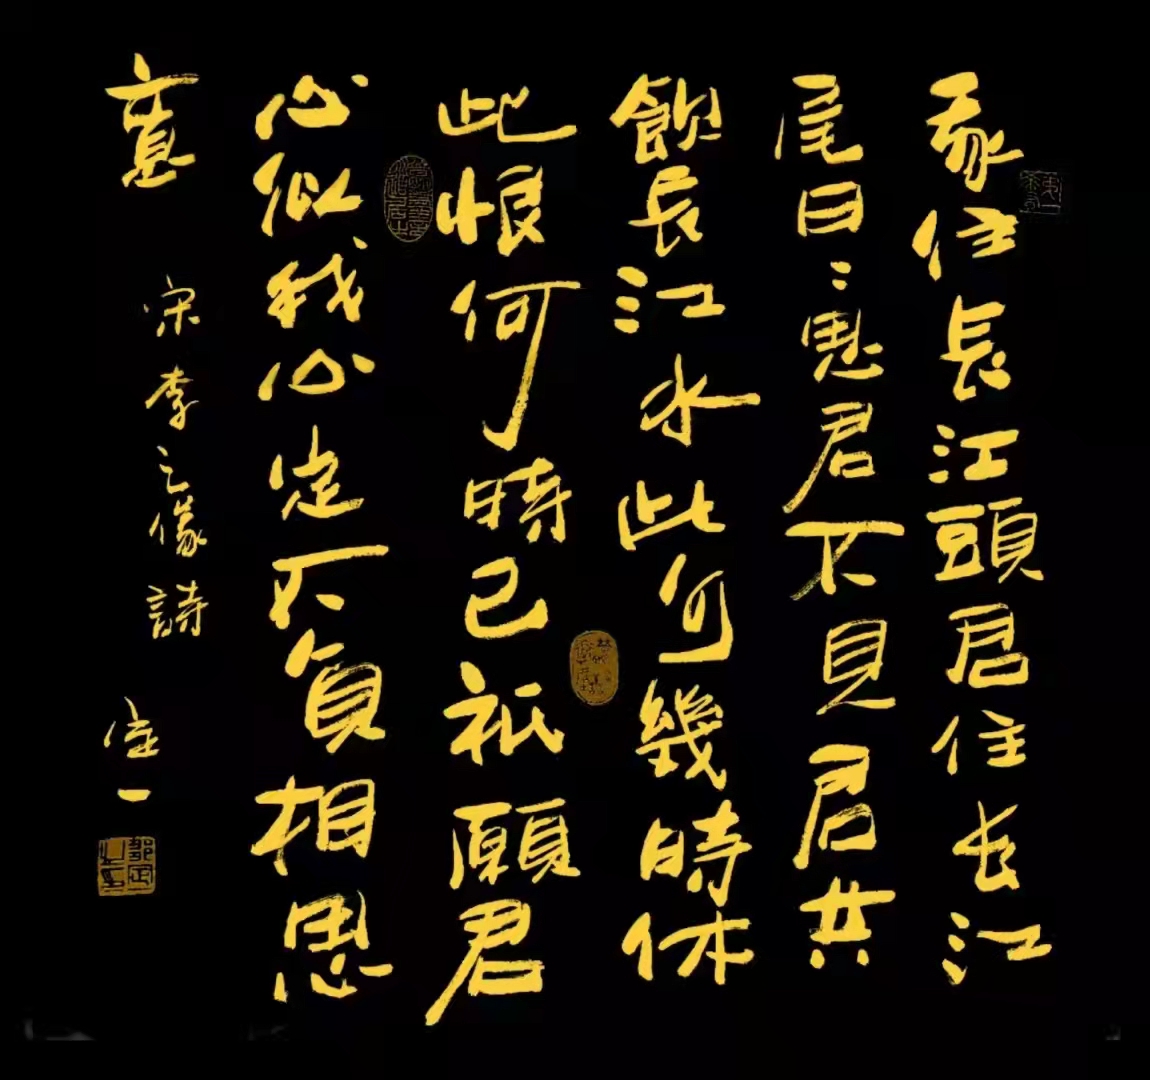 我住長江頭君住长江
尾日〻思君不見君共
飲長江水此何幾時休
此恨何時已祇願君
心似我心定不負相思
意
宋李之儀詩
定一